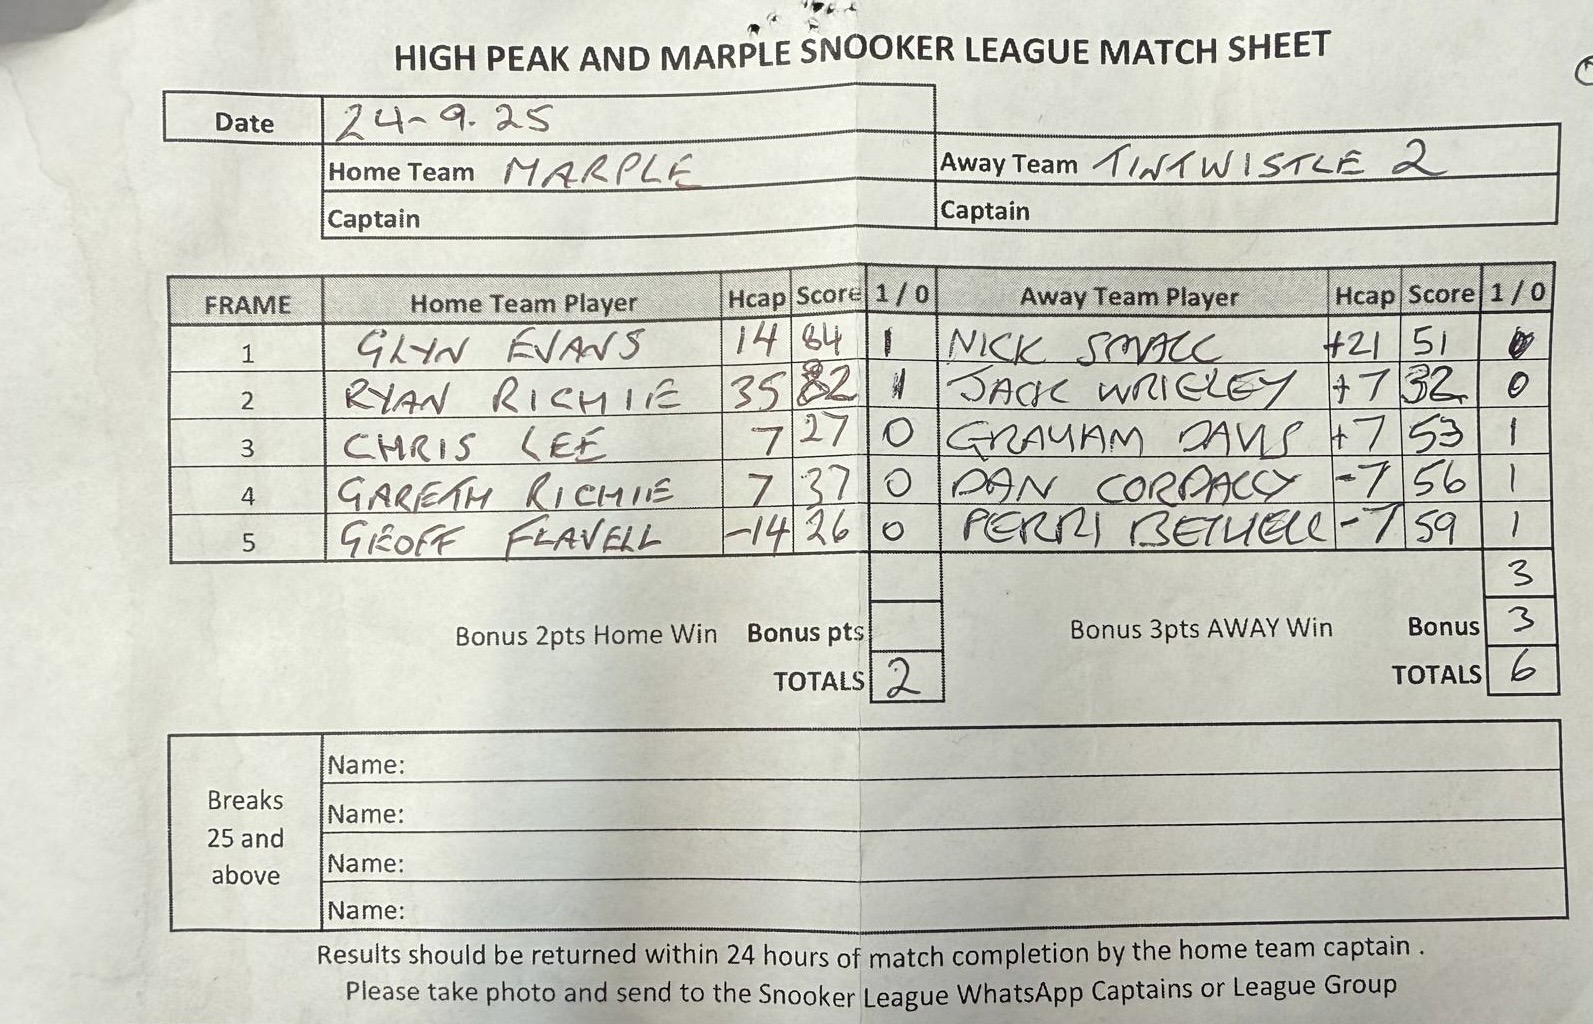 HIGH PEAK AND MARPLE SNOOKER LEAGUE MATCH SHEET
Date 24-9.25
Home Team MARPLE Away Team TINTWISTLE 2
Captain Captain
FRAME Home Team Player Hcap Score 1 / 0 Away Team Player Hcap Score 1 / 0
1 GLYN EVANS 14 84 1 NICK SMALL +21 51 0
2 RYAN RICHIE 35 82 1 JACK WRIGLEY +7 32 0
3 CHRIS LEE 7 27 0 GRAHAM DAVIS +7 53 1
4 GARETH RICHIE 7 37 0 DAN CORDALLY -7 56 1
5 GEOFF FLAVELL -14 26 0 PERRI BETHELL -7 59 1
3
Bonus 2pts Home Win Bonus pts Bonus 3pts AWAY Win Bonus 3
TOTALS 2 TOTALS 6
Breaks 25 and above
Name:
Name:
Name:
Name:
Results should be returned within 24 hours of match completion by the home team captain .
Please take photo and send to the Snooker League WhatsApp Captains or League Group